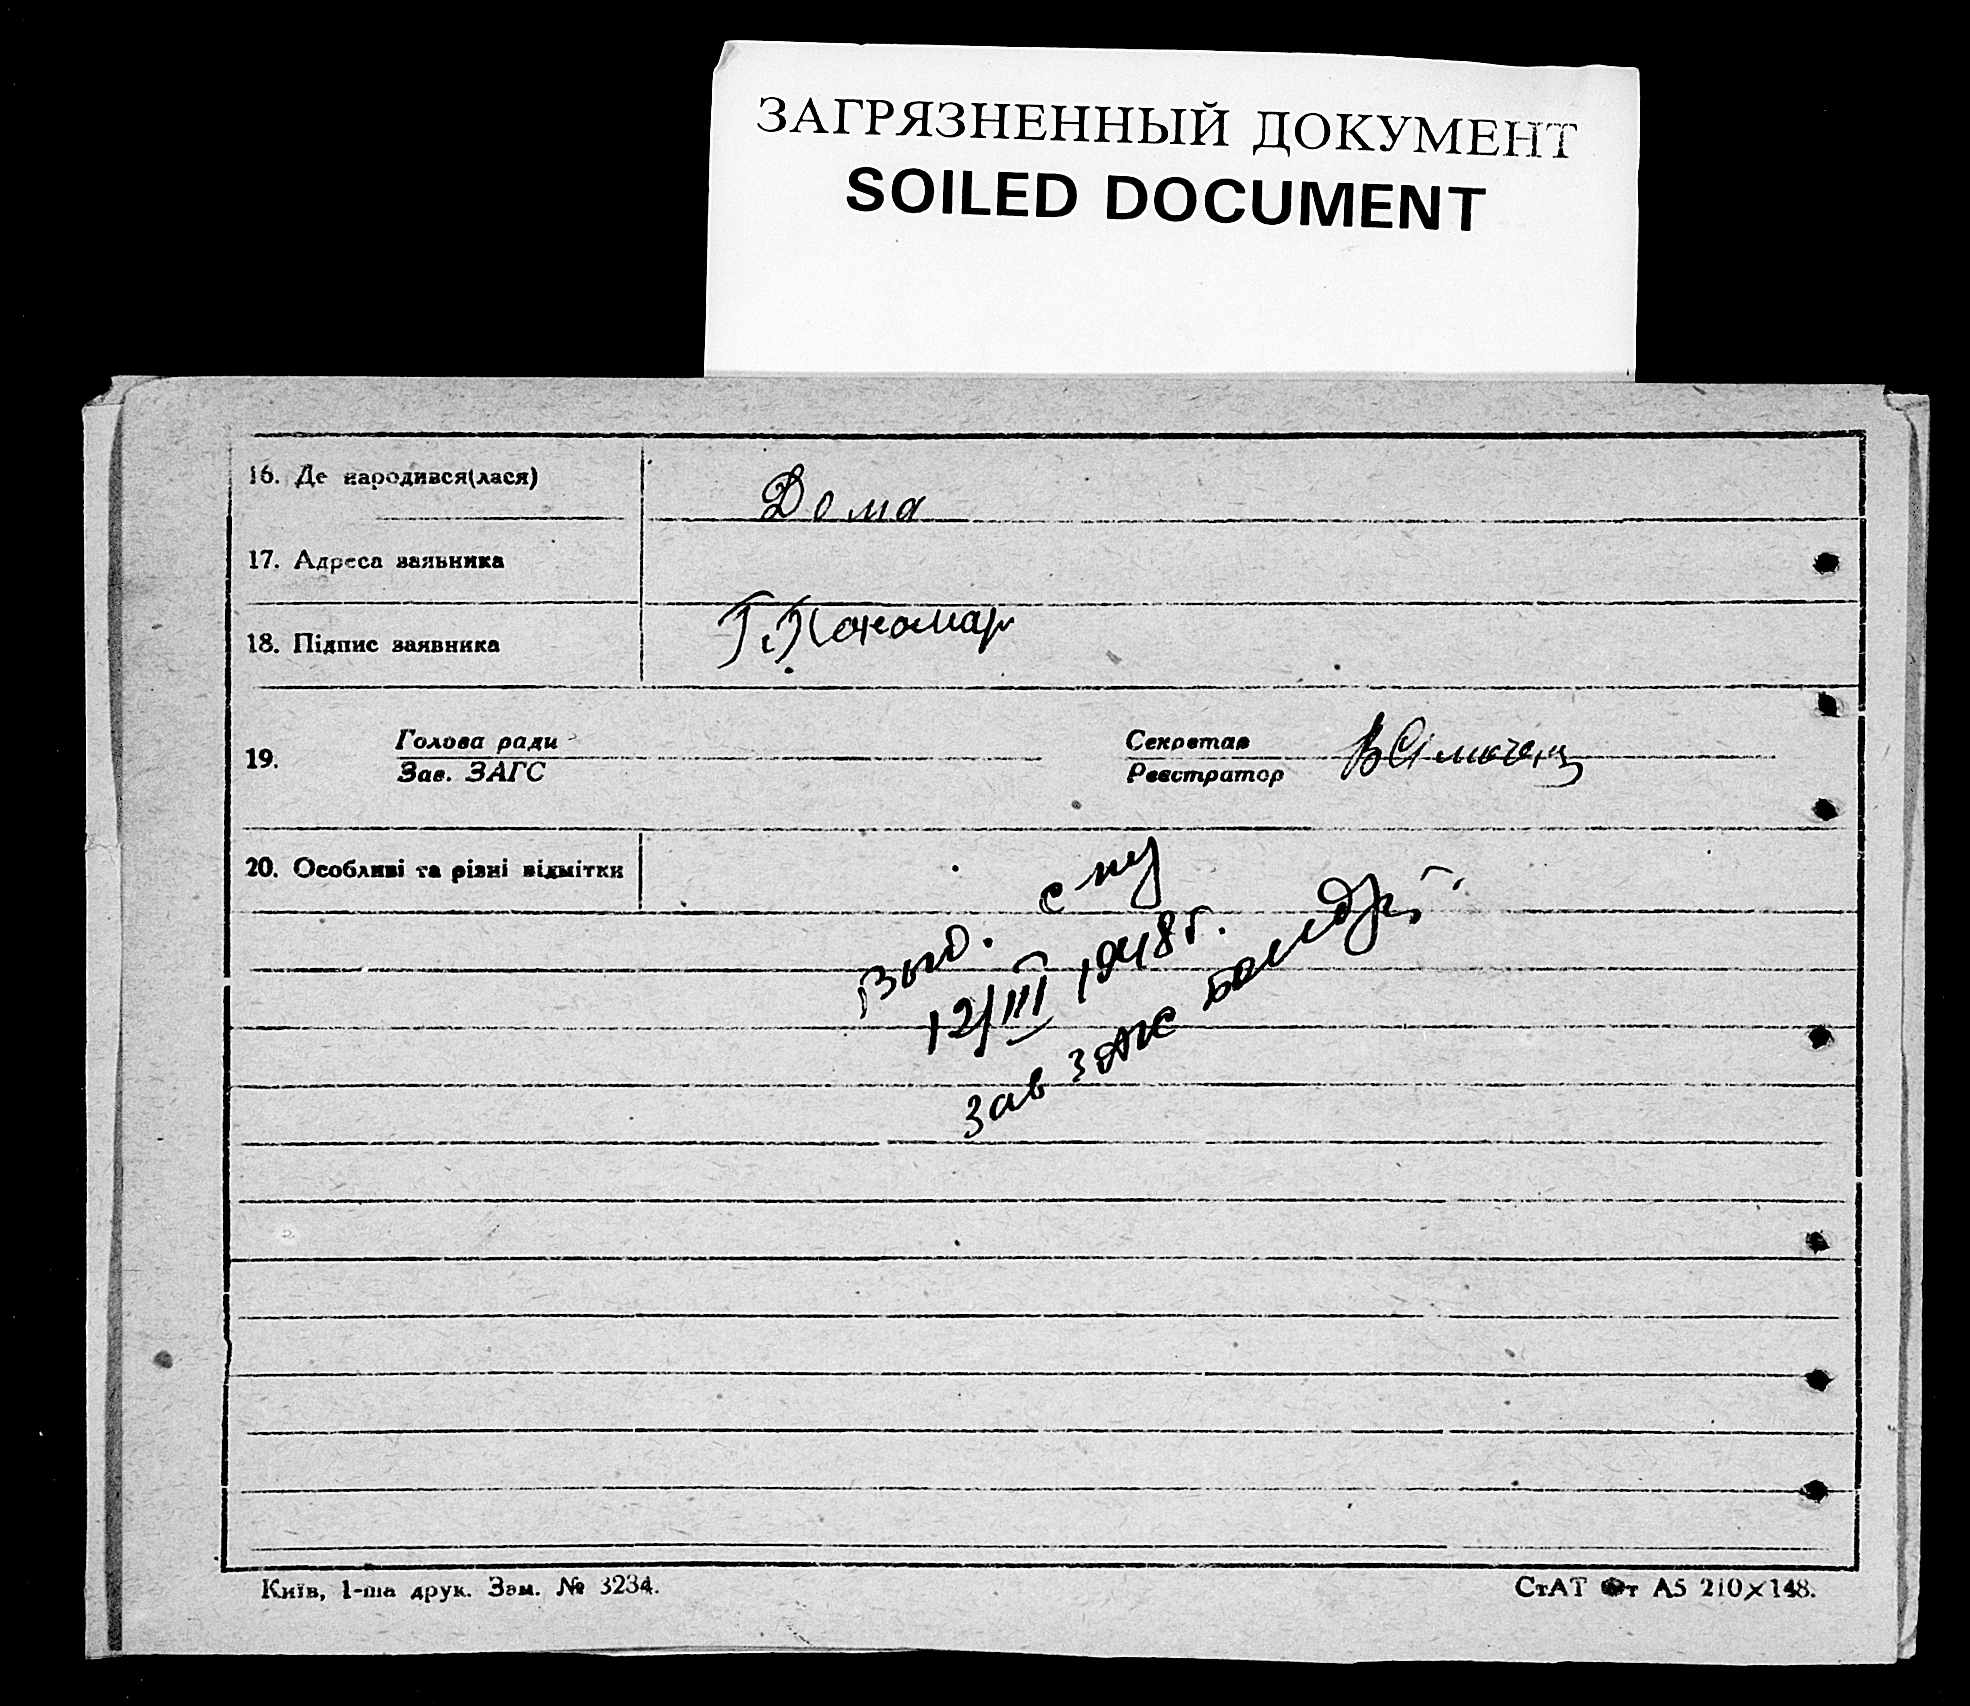 ЗАГРЯЗНЕННЫЙ ДОКУМЕНТ
SOILED DOCUMENT
16. Де народився(лася)
Дома
17. Адреса заявника
18. Підпис заявника
Г. Пономар
19.
Голова ради
Зав. ЗАГС
Секретар
Реєстратор
20. Особливі та різні відмітки
Выд.
12/III 1948 г.
Зав ЗАГС
Київ, 1-ша друк. Зам. № 3234.
СтАТ Фт А5 210×148.